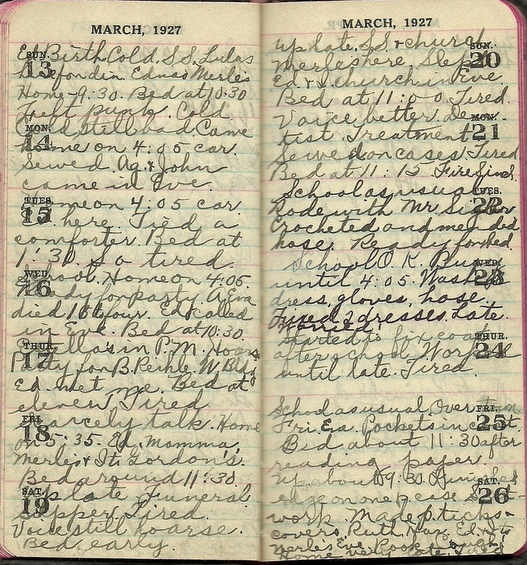 MARCH, 1927
SUN. 13
Ed Birth Cold. S.S. Lulas
Edna's Merle's
Home 9:30. Bed at 10:30
Felt punk. Cold
MON. 14
Cold still bad Came
home on 4:05 car.
Sewed. Ag. & John
came in Eve.
TUES. 15
Home on 4:05 car.
here. Tied a
comforter. Bed at
1:30 So tired
WED. 16
School. Home on 4:05
Ready for party A. Eva
died 16 hour. Ed called
in Eve. Bed at 10:30
THUR. 17
in P.M. Hoars
Party for B. W. Bldg
Ed. met me. Bed at
eleven Tired
FRI. 18
Scarcely talk. Home
5:35. Ed, Momma,
Merle & It. Gordon's.
Bed around 11:30.
SAT. 19
Up late Funeral
Supper Tired.
Voice still hoarse.
Bed early.
MARCH, 1927
SUN. 20
Up late. S.S. & church
Merles here. Slept
Ed & I church in Eve
Bed at 11:00. Tired.
MON. 21
Voice better. De
tist Treatment
Sewed on cases. Tired
Bed at 11:15
TUES. 22
School as usual
Rode with Mr.
Crocheted and mended
hose. Ready for bed
WED. 23
School O.K. Busy
until 4:05. Wash
dress, gloves, hose.
2 dresses. Late.
THUR. 24
Started is for coat
after school. Worked
until late. Tired
FRI. 25
School as usual Over
Fri. Eve. Pockets in coat.
Bed about 11:30 after
reading paper.
SAT. 26
Up about 9:30 Finished
edge on one p. case
work Made p. ticks &
covers. Ruth, Ed. It,
Merle's Eve.
Home very late. Tired